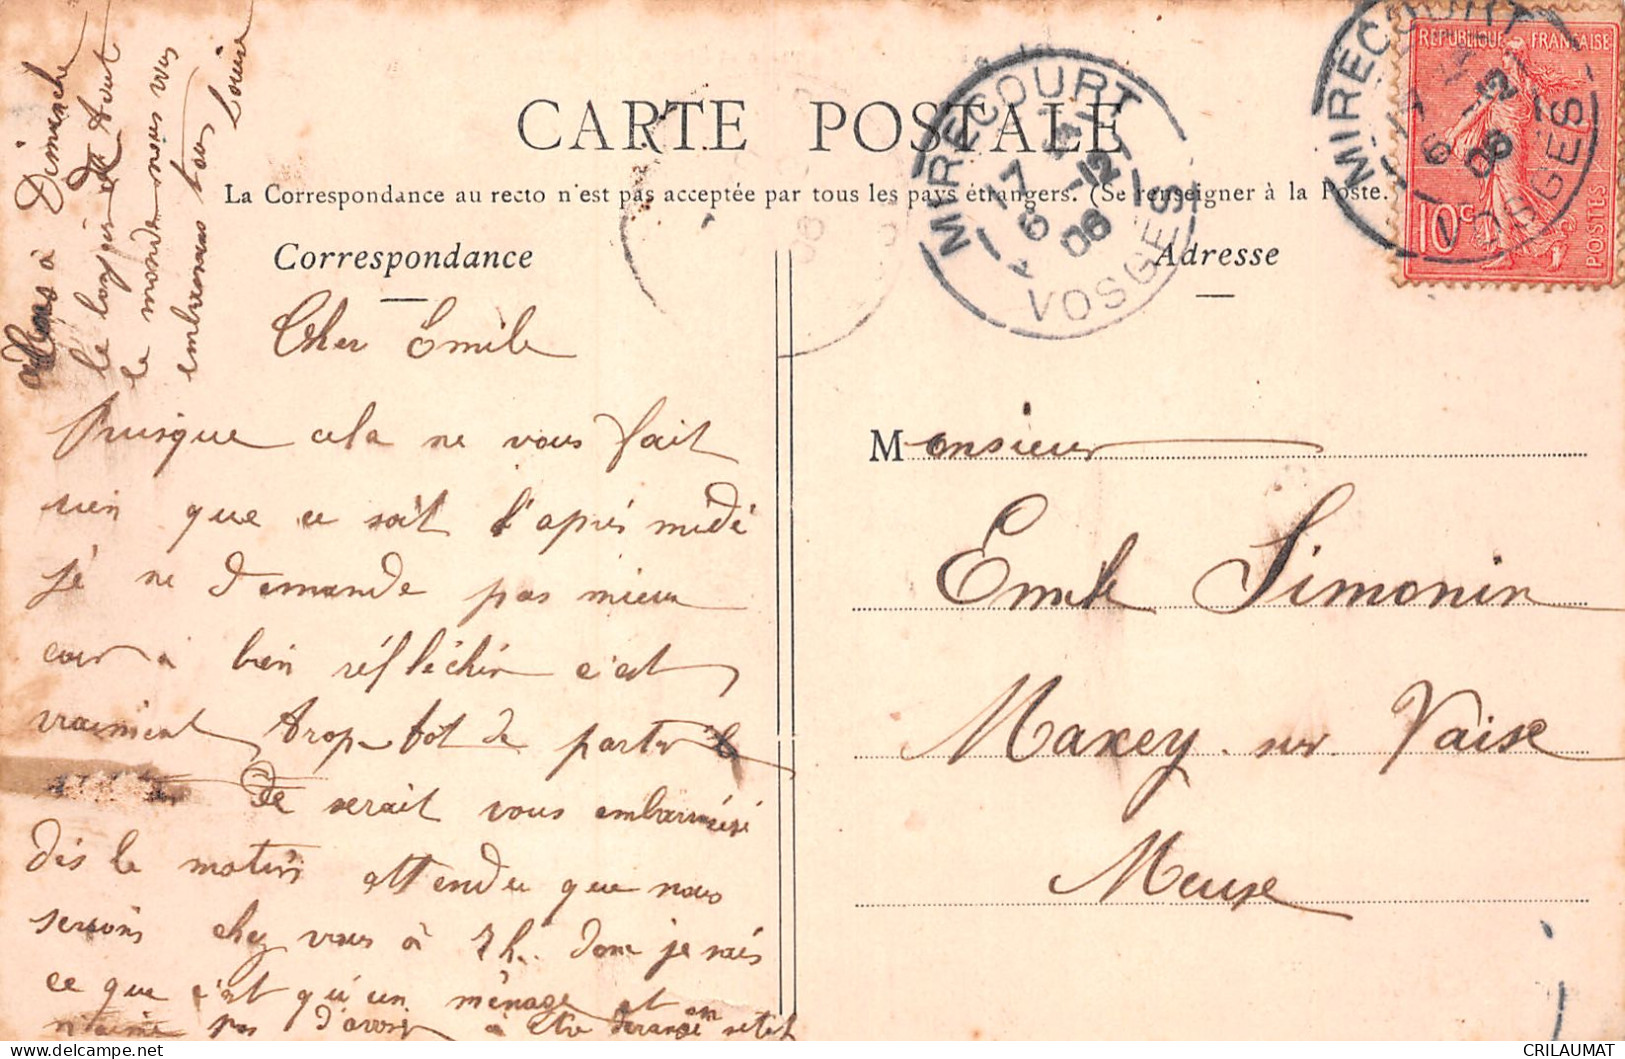 CARTE POSTALE
La Correspondance au recto n'est pas acceptée par tous les pays étrangers. (Se renseigner à la Poste.
Correspondance
Adresse
MIRECOURT
17
6 -12
06
VOSGES
MIRECOURT
17
6 -12
06
VOSGES
RÉPUBLIQUE FRANÇAISE
10c
POSTES
Cher Emile
Puisque cela ne vous fait
rien que ce soit l'après midi
je ne demande pas mieux
car à bien réfléchir c'est
vraiment trop tot de partir le
Ce serait vous embarrassé
dès le matin attendu que nous
serions chez vous à 7h. donc je sais
ce que c'est qu'un ménage et
n'aime pas d'avoir à être derangé
allons à Dimanche
le loyer
la monde
embrassons tous Louise
Monsieur
Emile Simonin
Maxey sur Vaise
Meuse
CRILAUMAT